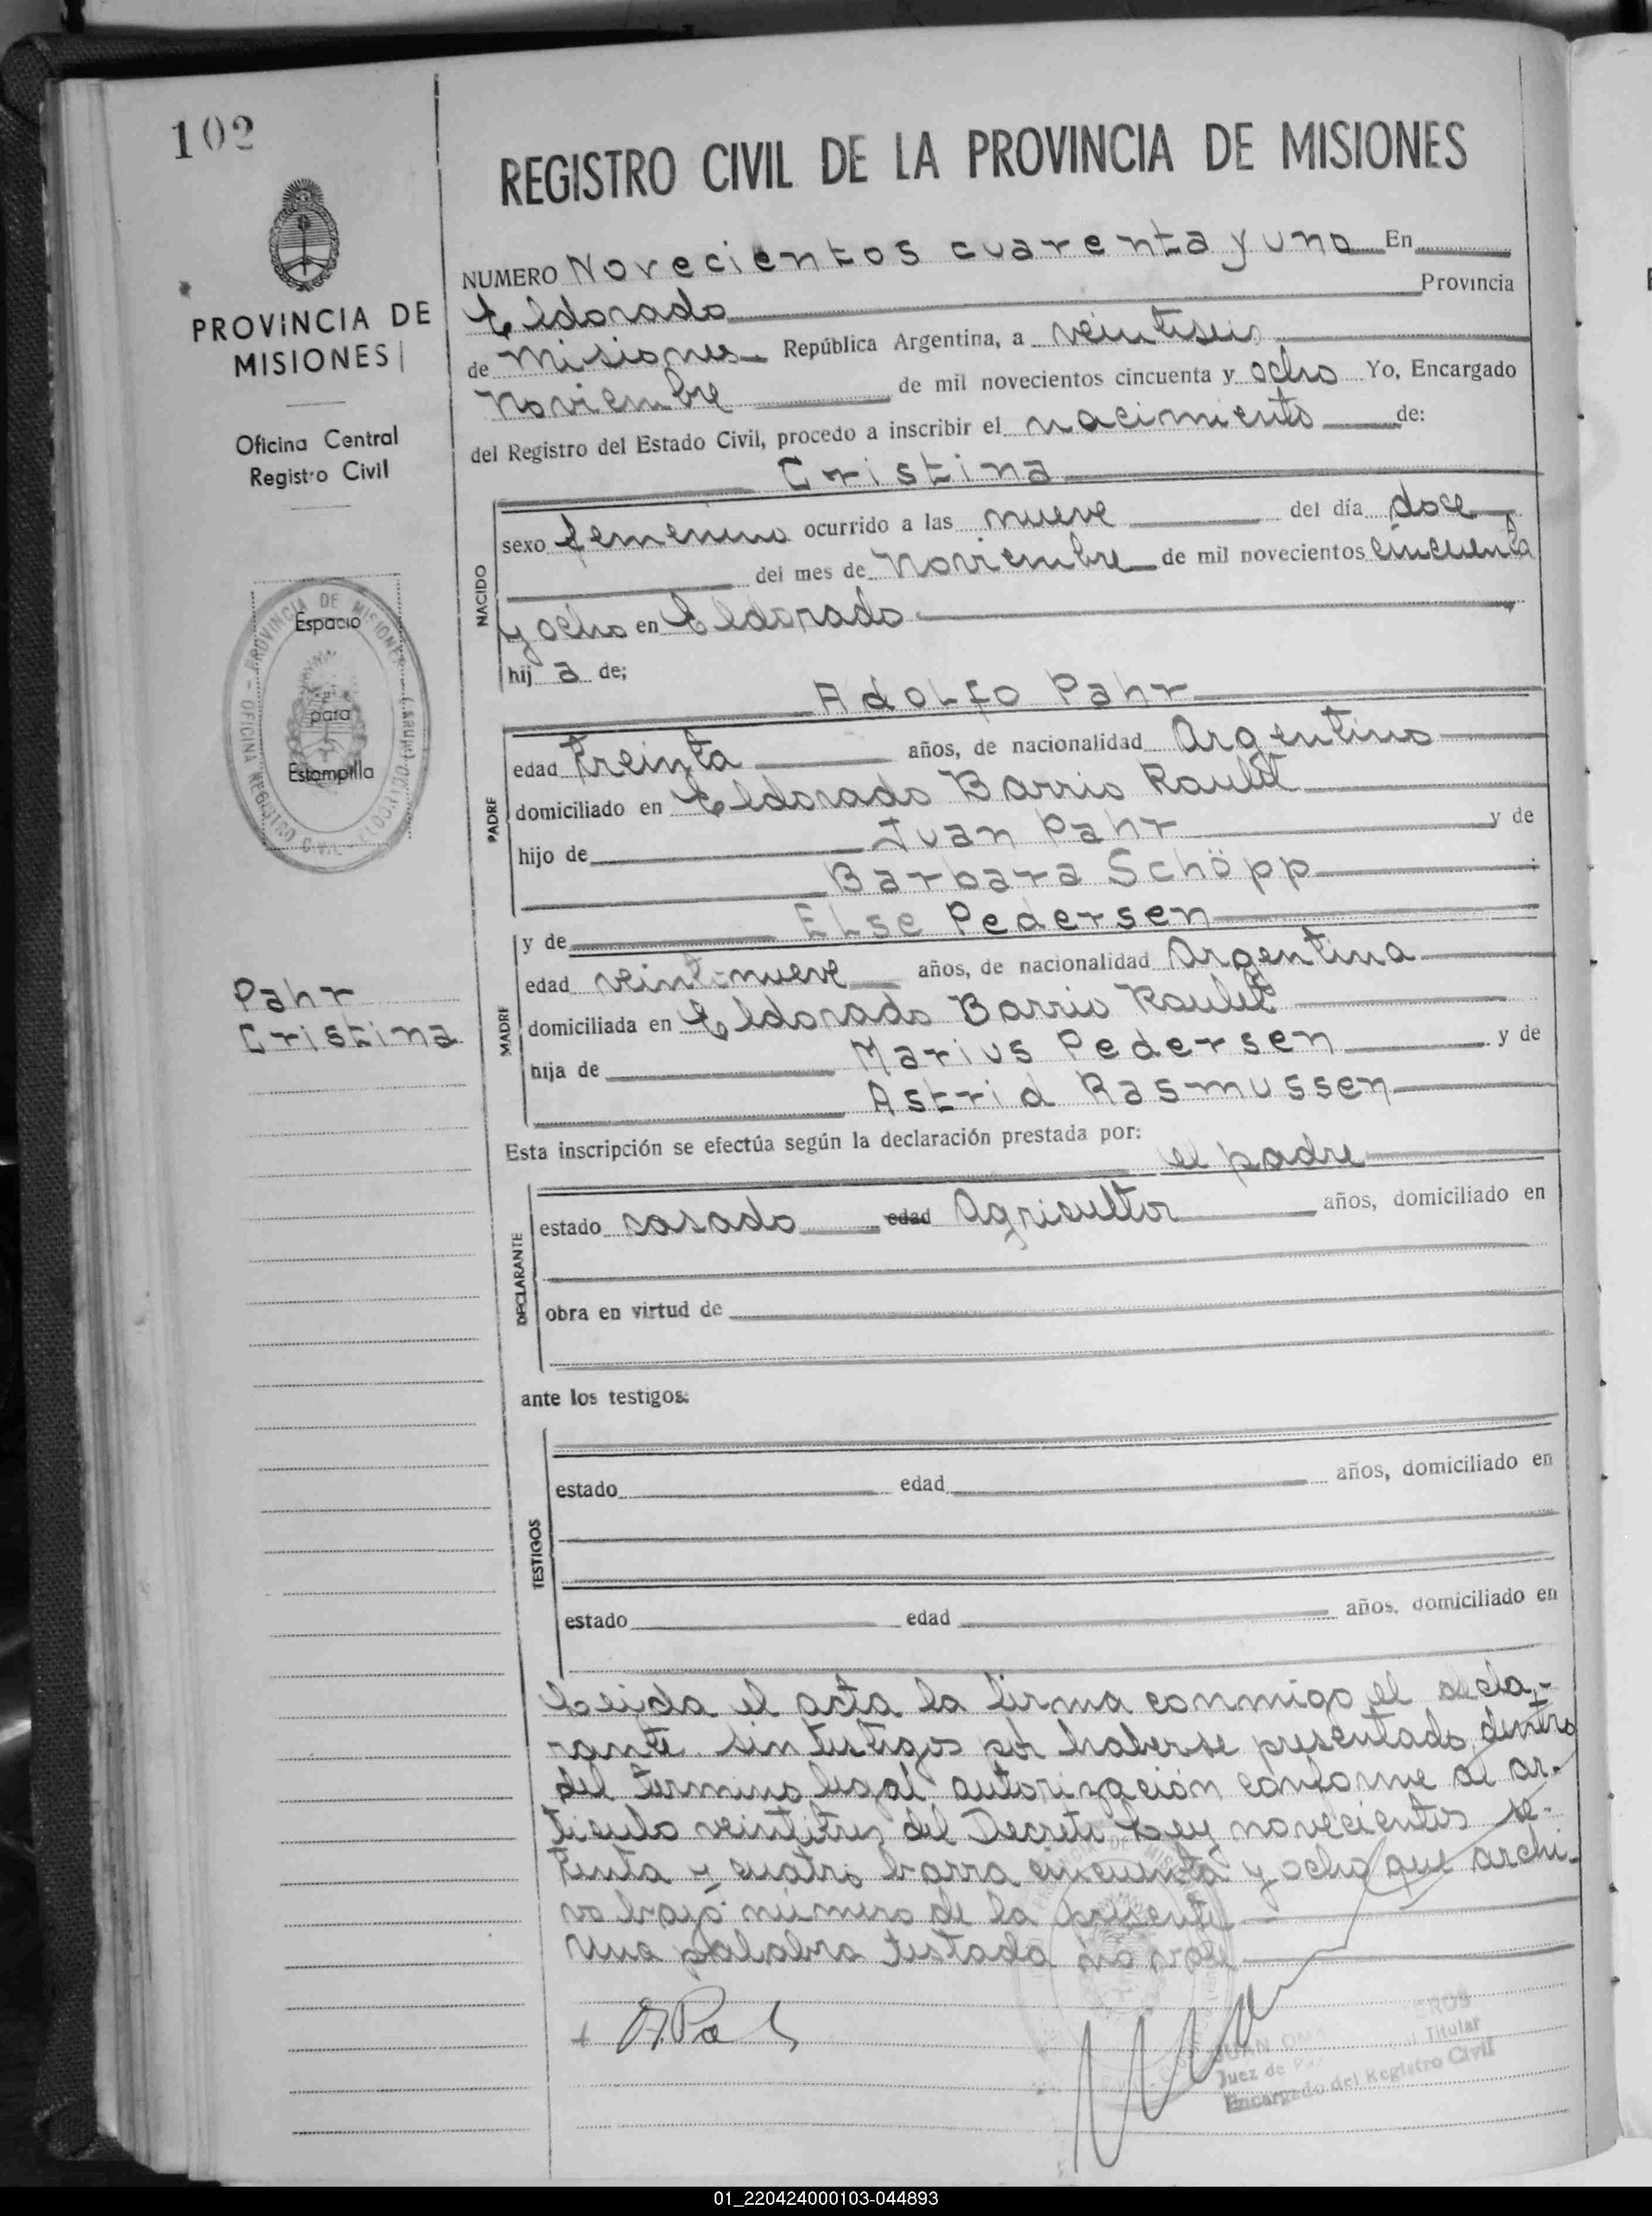 102
REGISTRO CIVIL DE LA PROVINCIA DE MISIONES
PROVINCIA DE
MISIONES
Oficina Central
Registro Civil
NUMERO Novecientos cuarenta y uno En
Eldorado Provincia
de Misiones República Argentina, a veintiseis
Noviembre de mil novecientos cincuenta y ocho Yo, Encargado
del Registro del Estado Civil, procedo a inscribir el nacimiento de:
Cristina
NACIDO
sexo femenino ocurrido a las nueve del día doce
del mes de Noviembre de mil novecientos cincuenta
y ocho en Eldorado
hij a de;
PROVINCIA DE MISIONES
OFICINA REGISTRO CIVIL
Espacio
para
Estampilla
Adolfo Pahr
PADRE
edad treinta años, de nacionalidad Argentino
domiciliado en Eldorado Barrio
hijo de Juan Pahr y de
Barbara Schöpp
y de Else Pedersen
MADRE
edad veintinueve años, de nacionalidad Argentina
domiciliada en Eldorado Barrio
hija de Marius Pedersen y de
Astrid Rasmussen
Pahr
Cristina
Esta inscripción se efectúa según la declaración prestada por:
el padre
DECLARANTE
estado casado edad Agricultor años, domiciliado en
obra en virtud de
ante los testigos:
TESTIGOS
estado edad años, domiciliado en
estado edad años, domiciliado en
Leida el acta la firma conmigo el decla-
rante sin testigos por haberse presentado dentro
del termino legal autorización conforme al ar-
ticulo veintitres del Decreto Ley novecientos se-
tenta y cuatro barra cincuenta y ocho que archi-
vo bajo número de la presente
Una palabra testada no vale
A. Pa
JUAN
Titular
Juez de
Encargado del Registro Civil
01_220424000103-044893